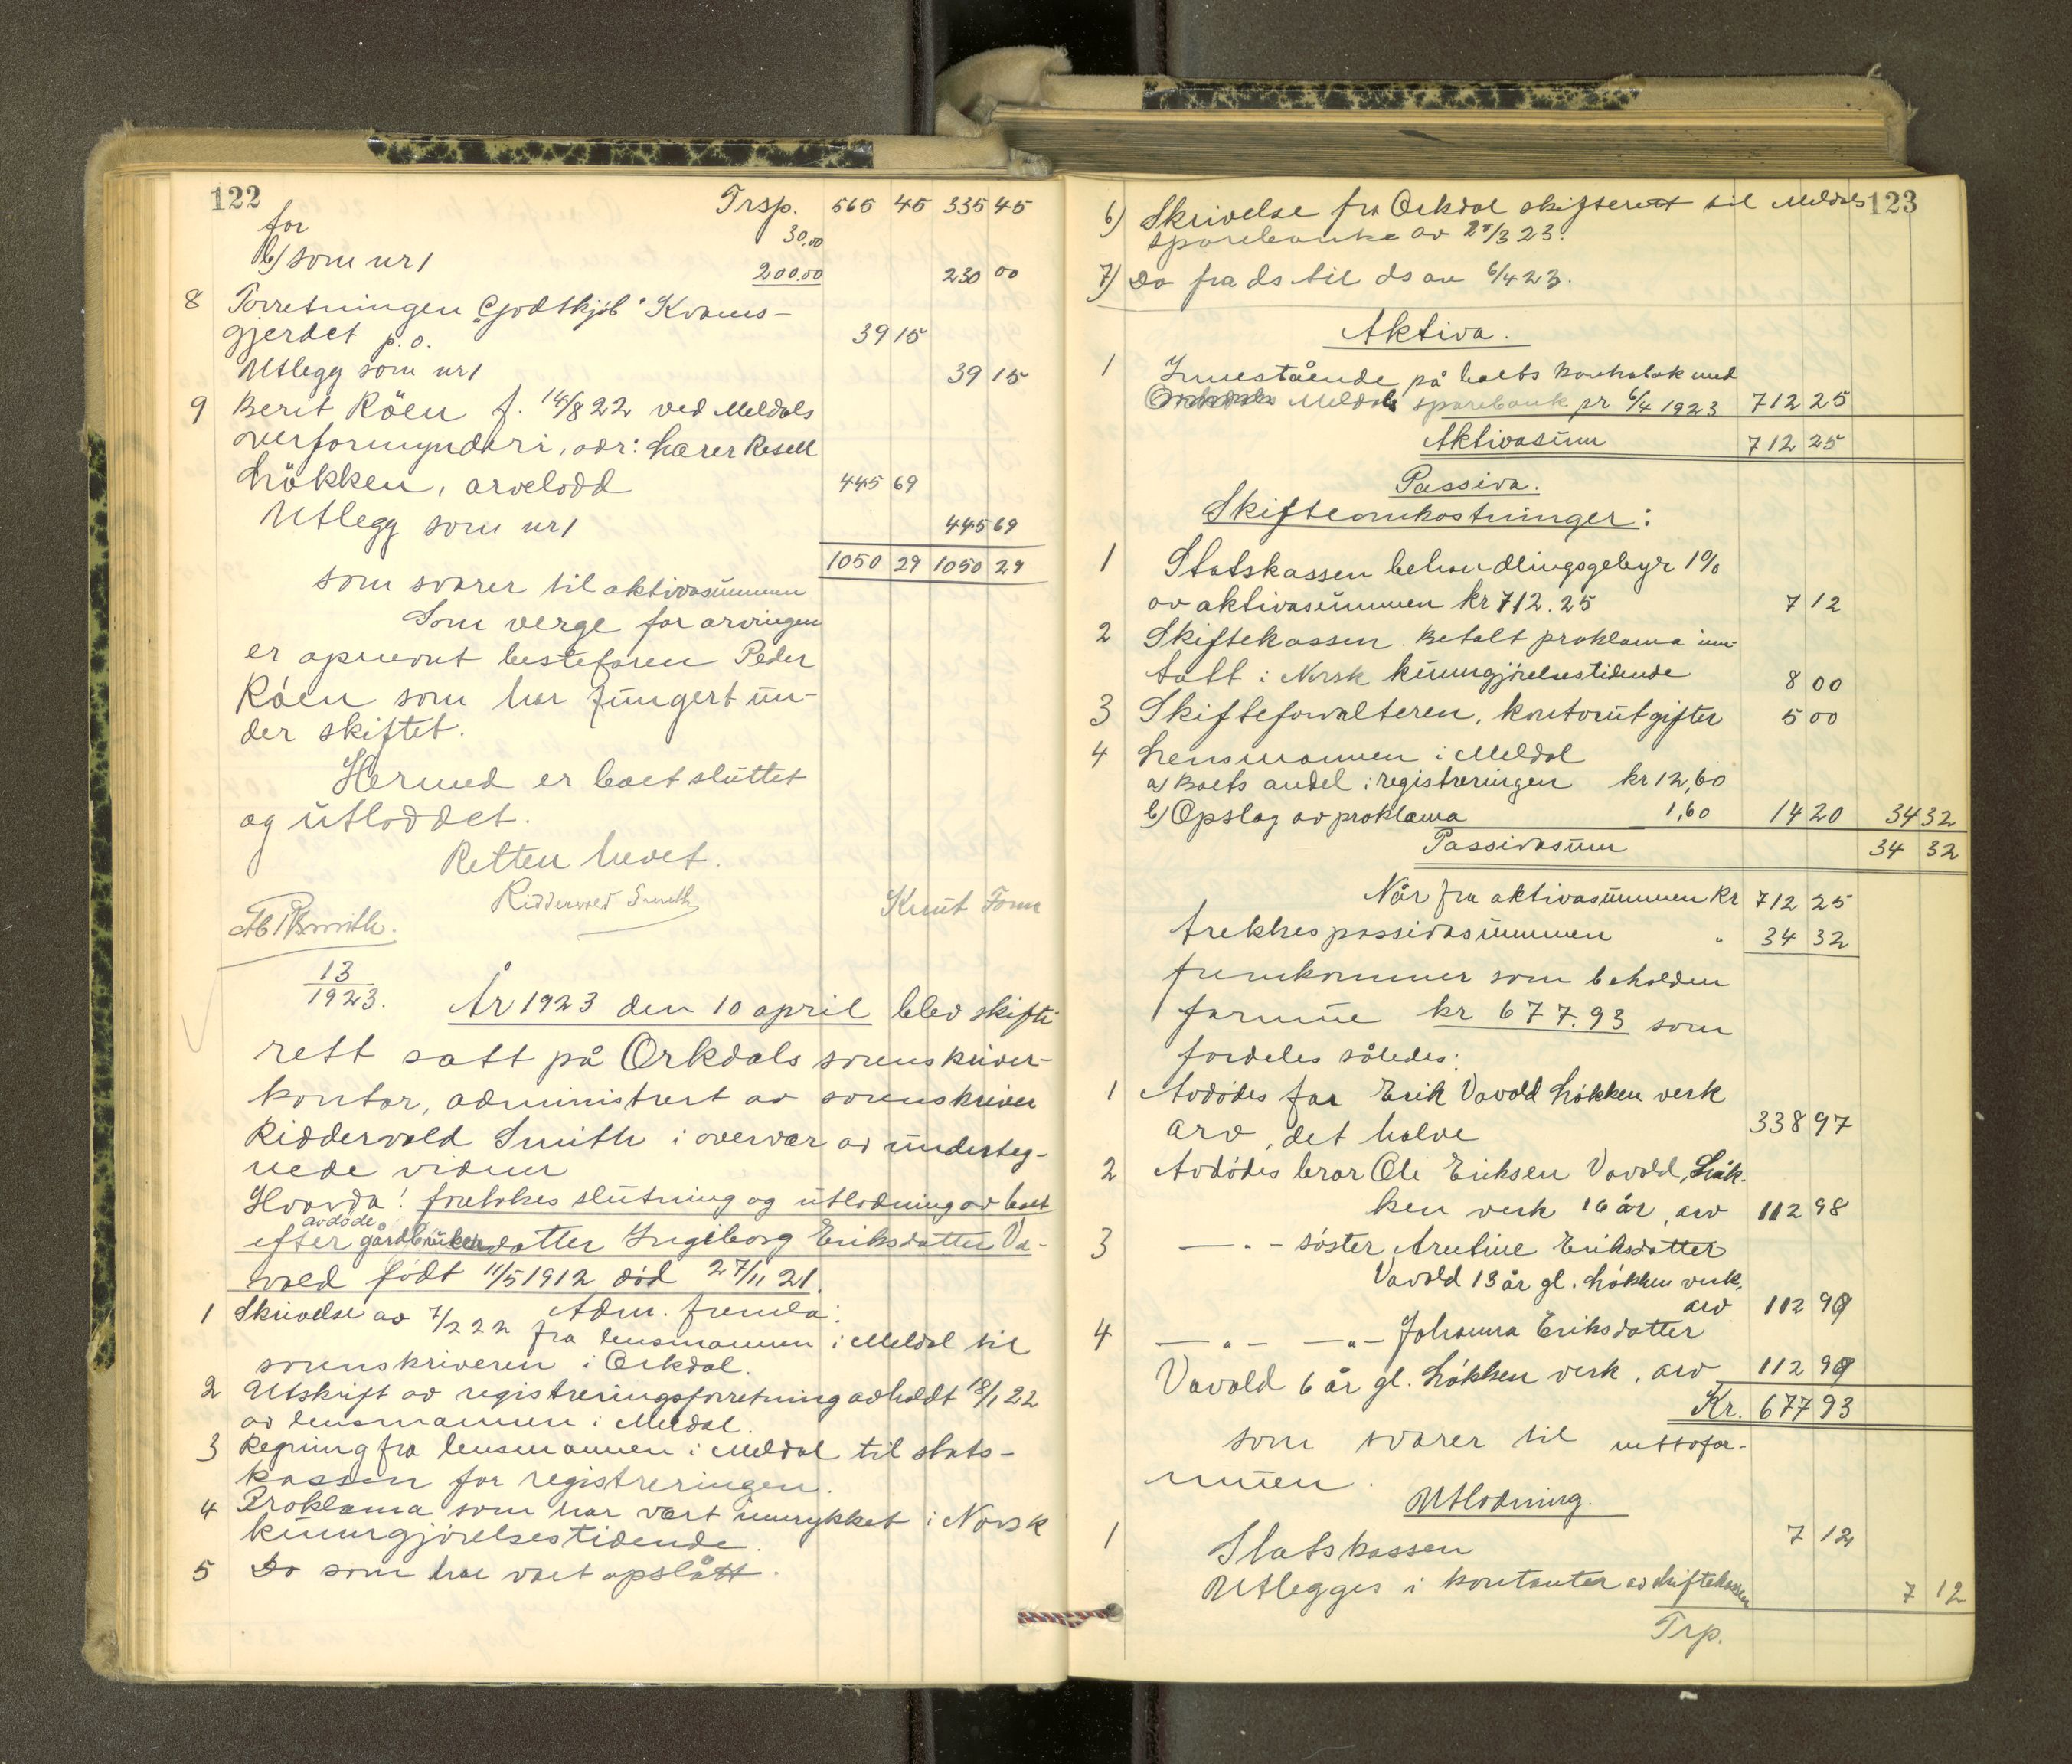 122
Trsp. 565 45 335 45
for 30,00
b) som nr 1 200.00 230 00
8 Forretningen "Godtkjöb" Kvams-
gjerdet p.o. 39 15
Utlegg som nr 1 39 15
9 Berit Röen f. 14/8 22 ved Meldals
overformynderi, adr: Lærer Resell
Lökken, arvelodd 445 69
Utlegg som nr 1 445 69
1050 29 1050 29
som svarer til aktivasummen
Som verge for arvingen
er opnevnt bestefaren Peder
Röen som har fungert un-
der skiftet.
Hermed er boet sluttet
og utloddet.
Retten hevet.
Riddervold Smith Knut Tonn
13
1923.
År 1923 den 10 april blev skifte
rett satt på Orkdals sorenskriver-
kontor, administrert av sorenskriver
Riddervold Smith i overvær av underteg-
nede vidner
Hvorda! foretokes slutning og utlodning av boet
avdöde
efter gårdbrukerdatter Ingeborg Eriksdatter Va-
vold födt 11/5 1912 död 27/11 21.
Adm. fremla:
1 Skrivelse av 7/2 22 fra lensmannen i Meldal til
sorenskriveren i Orkdal.
2 Utskrift av registreringsforretning avholdt 18/1 22
av lensmannen i Meldal.
3 Regning fra lensmannen i Meldal til stats-
kassen for registreringen.
4 Proklama som har vært innrykket i Norsk
kunngjörelsestidende.
5 Do som har vært opslått.
123
6) Skrivelse fra Orkdal skifterett til Meldals
sparebanke av 28/3 23.
7) Do fra ds til ds av 6/4 23.
Aktiva.
1 Innestående på boets kontrabok med
Meldals sparebank pr 6/4 1923 712 25
Aktivasum 712 25
Passiva.
Skifteomkostninger:
1 Statskassen behandlingsgebyr 1%
av aktivasummen kr 712.25 7 12
2 Skiftekassen. Betalt proklama inn-
tatt i Norsk kunngjörelsestidende 8 00
3 Skifteforvalteren, kontorutgifter 5 00
4 Lensmannen i Meldal
a) Boets andel i registreringen kr 12,60
b) Opslag av proklama 1,60 14 20 34 32
Passivasum 34 32
Når fra aktivasummen kr 712 25
trekkes passivasummen " 34 32
fremkommer som beholden
formue kr 677.93 som
fordeles således:
1 Avdödes far Erik Vavold Lökken verk
arv, det halve 338 97
2 Avdödes bror Ole Eriksen Vavold, Lök-
ken verk 16 år, arv 112 98
3 — " — söster Arntine Eriksdatter
Vavold 13 år gl. Lökken verk,
arv 112 99
4 — " — — " — Johanna Eriksdatter
Vavold 6 år gl. Lökken verk, arv 112 99
Kr. 677 93
som svarer til nettofor-
muen.
Utlodning.
1 Statskassen 7 12
Utlegges i kontanter av skiftekassen 7 12
Trp.